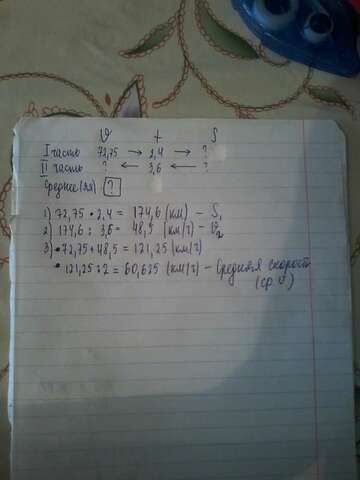 V t S
I часть 72,75 → 2,4 → ?
II часть ? ← 3,6 ← ?
Среднее(яя) ?
1) 72,75 • 2,4 = 174,6 (км) – S₁
2) 174,6 : 3,6 = 48,5 (км/ч) – V₂
3) • 72,75 + 48,5 = 121,25 (км/ч)
• 121,25 : 2 = 60,625 (км/ч) – Средняя скорость
(ср. V)